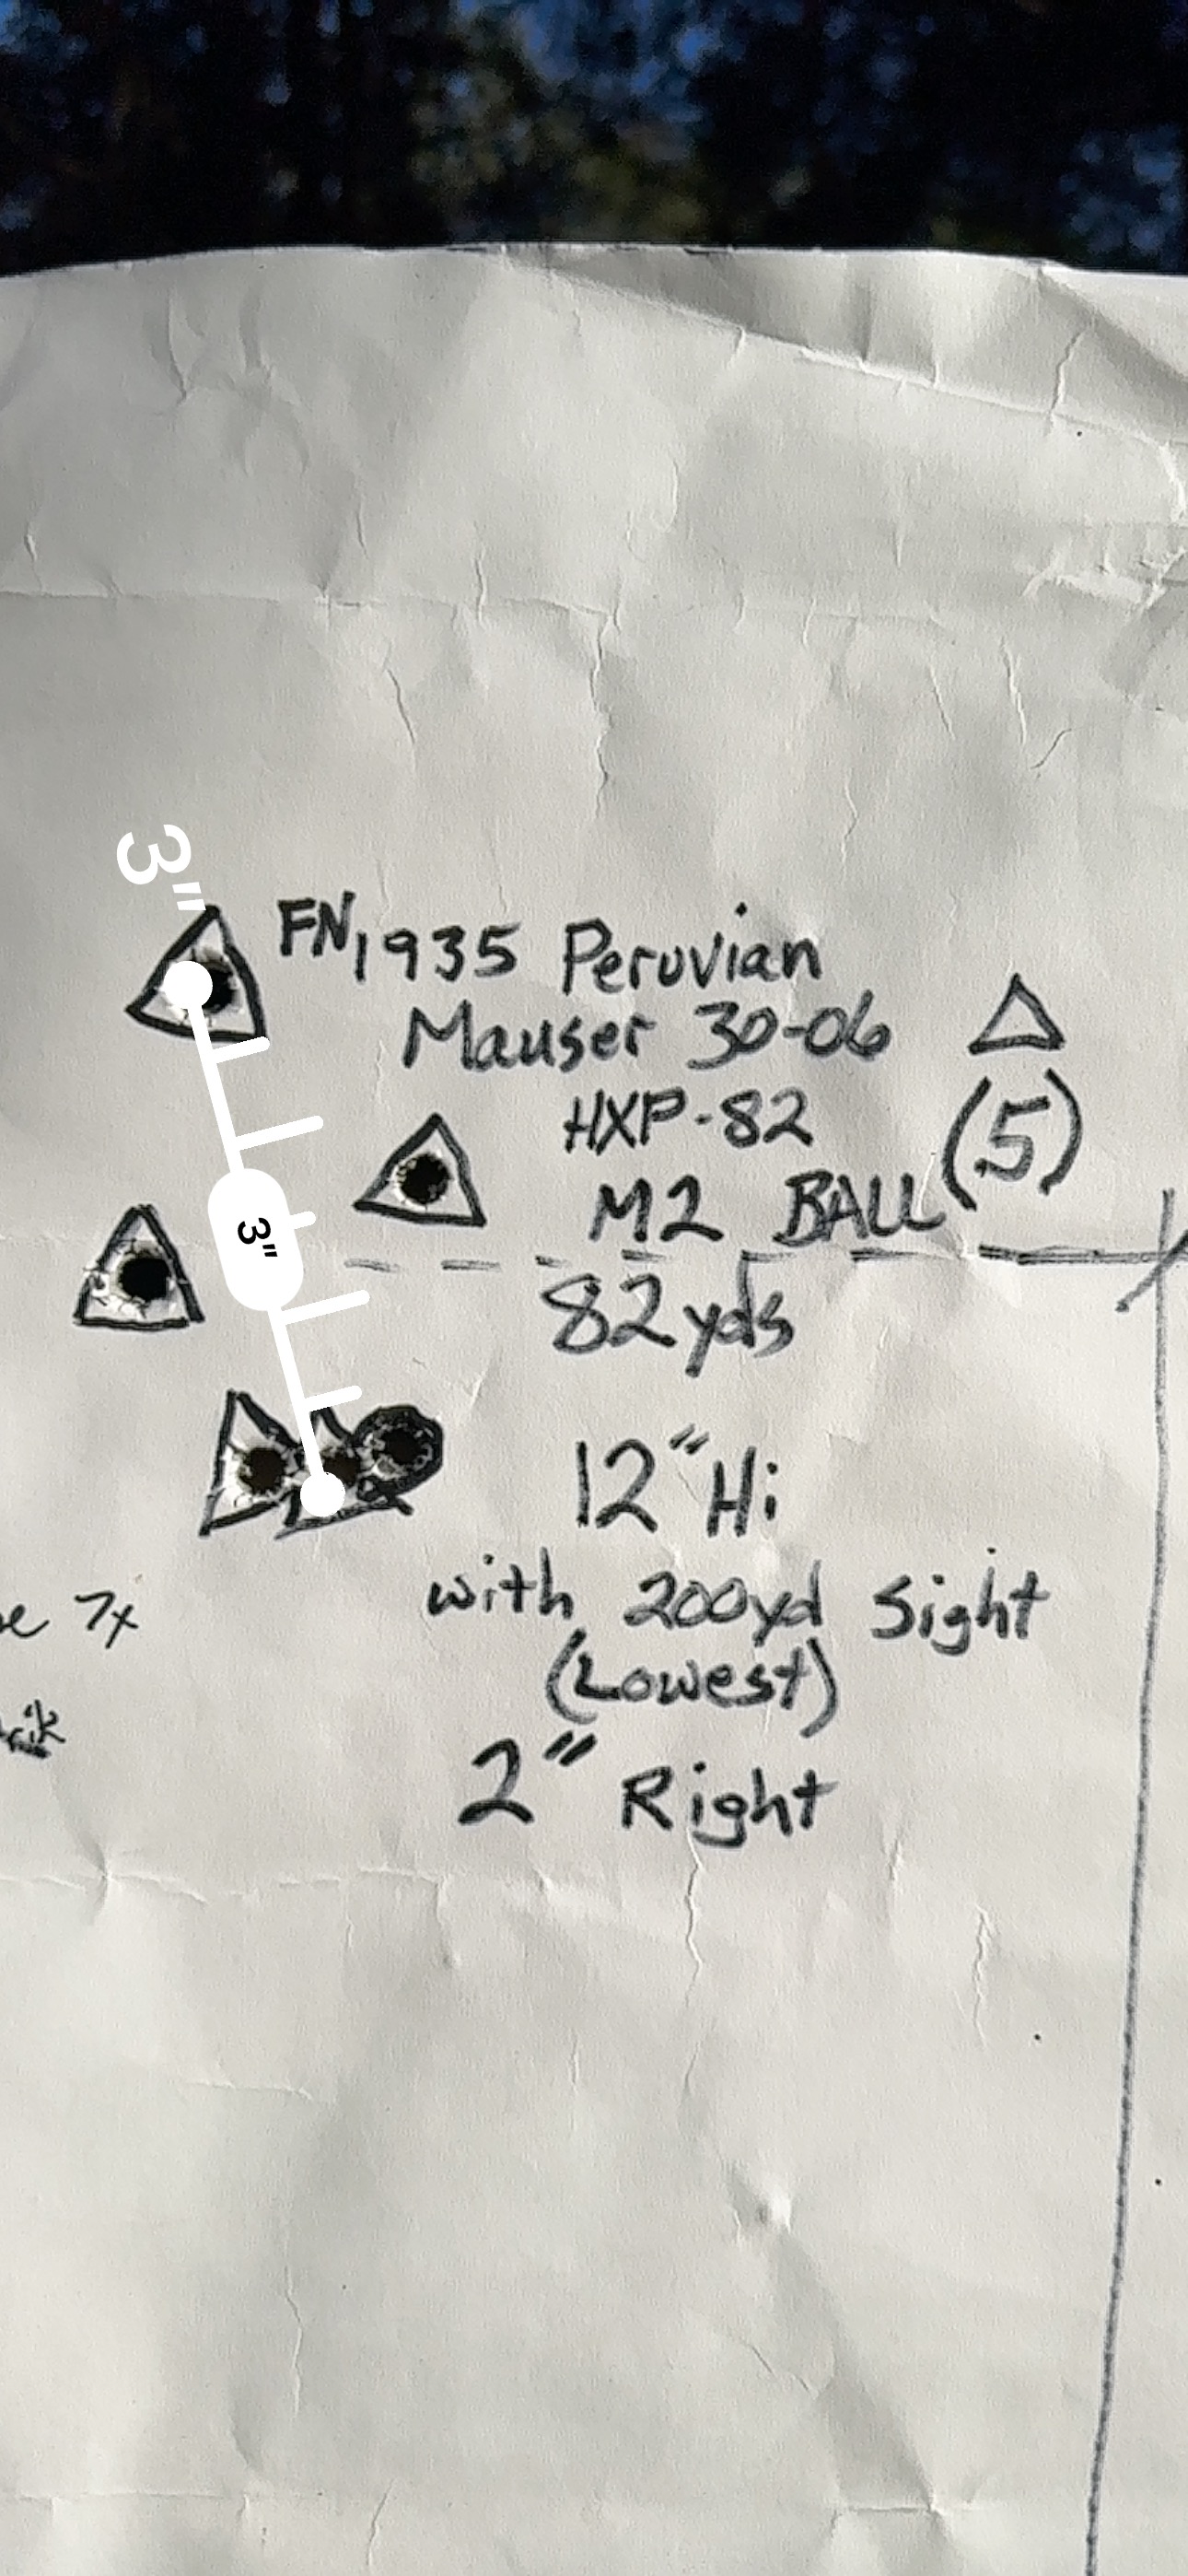 3"
FN 1935 Peruvian
Mauser 30-06
HXP-82
(5)
M2 BALL
3"
82yds
12" Hi
with 200yd Sight
7x
(Lowest)
2" Right